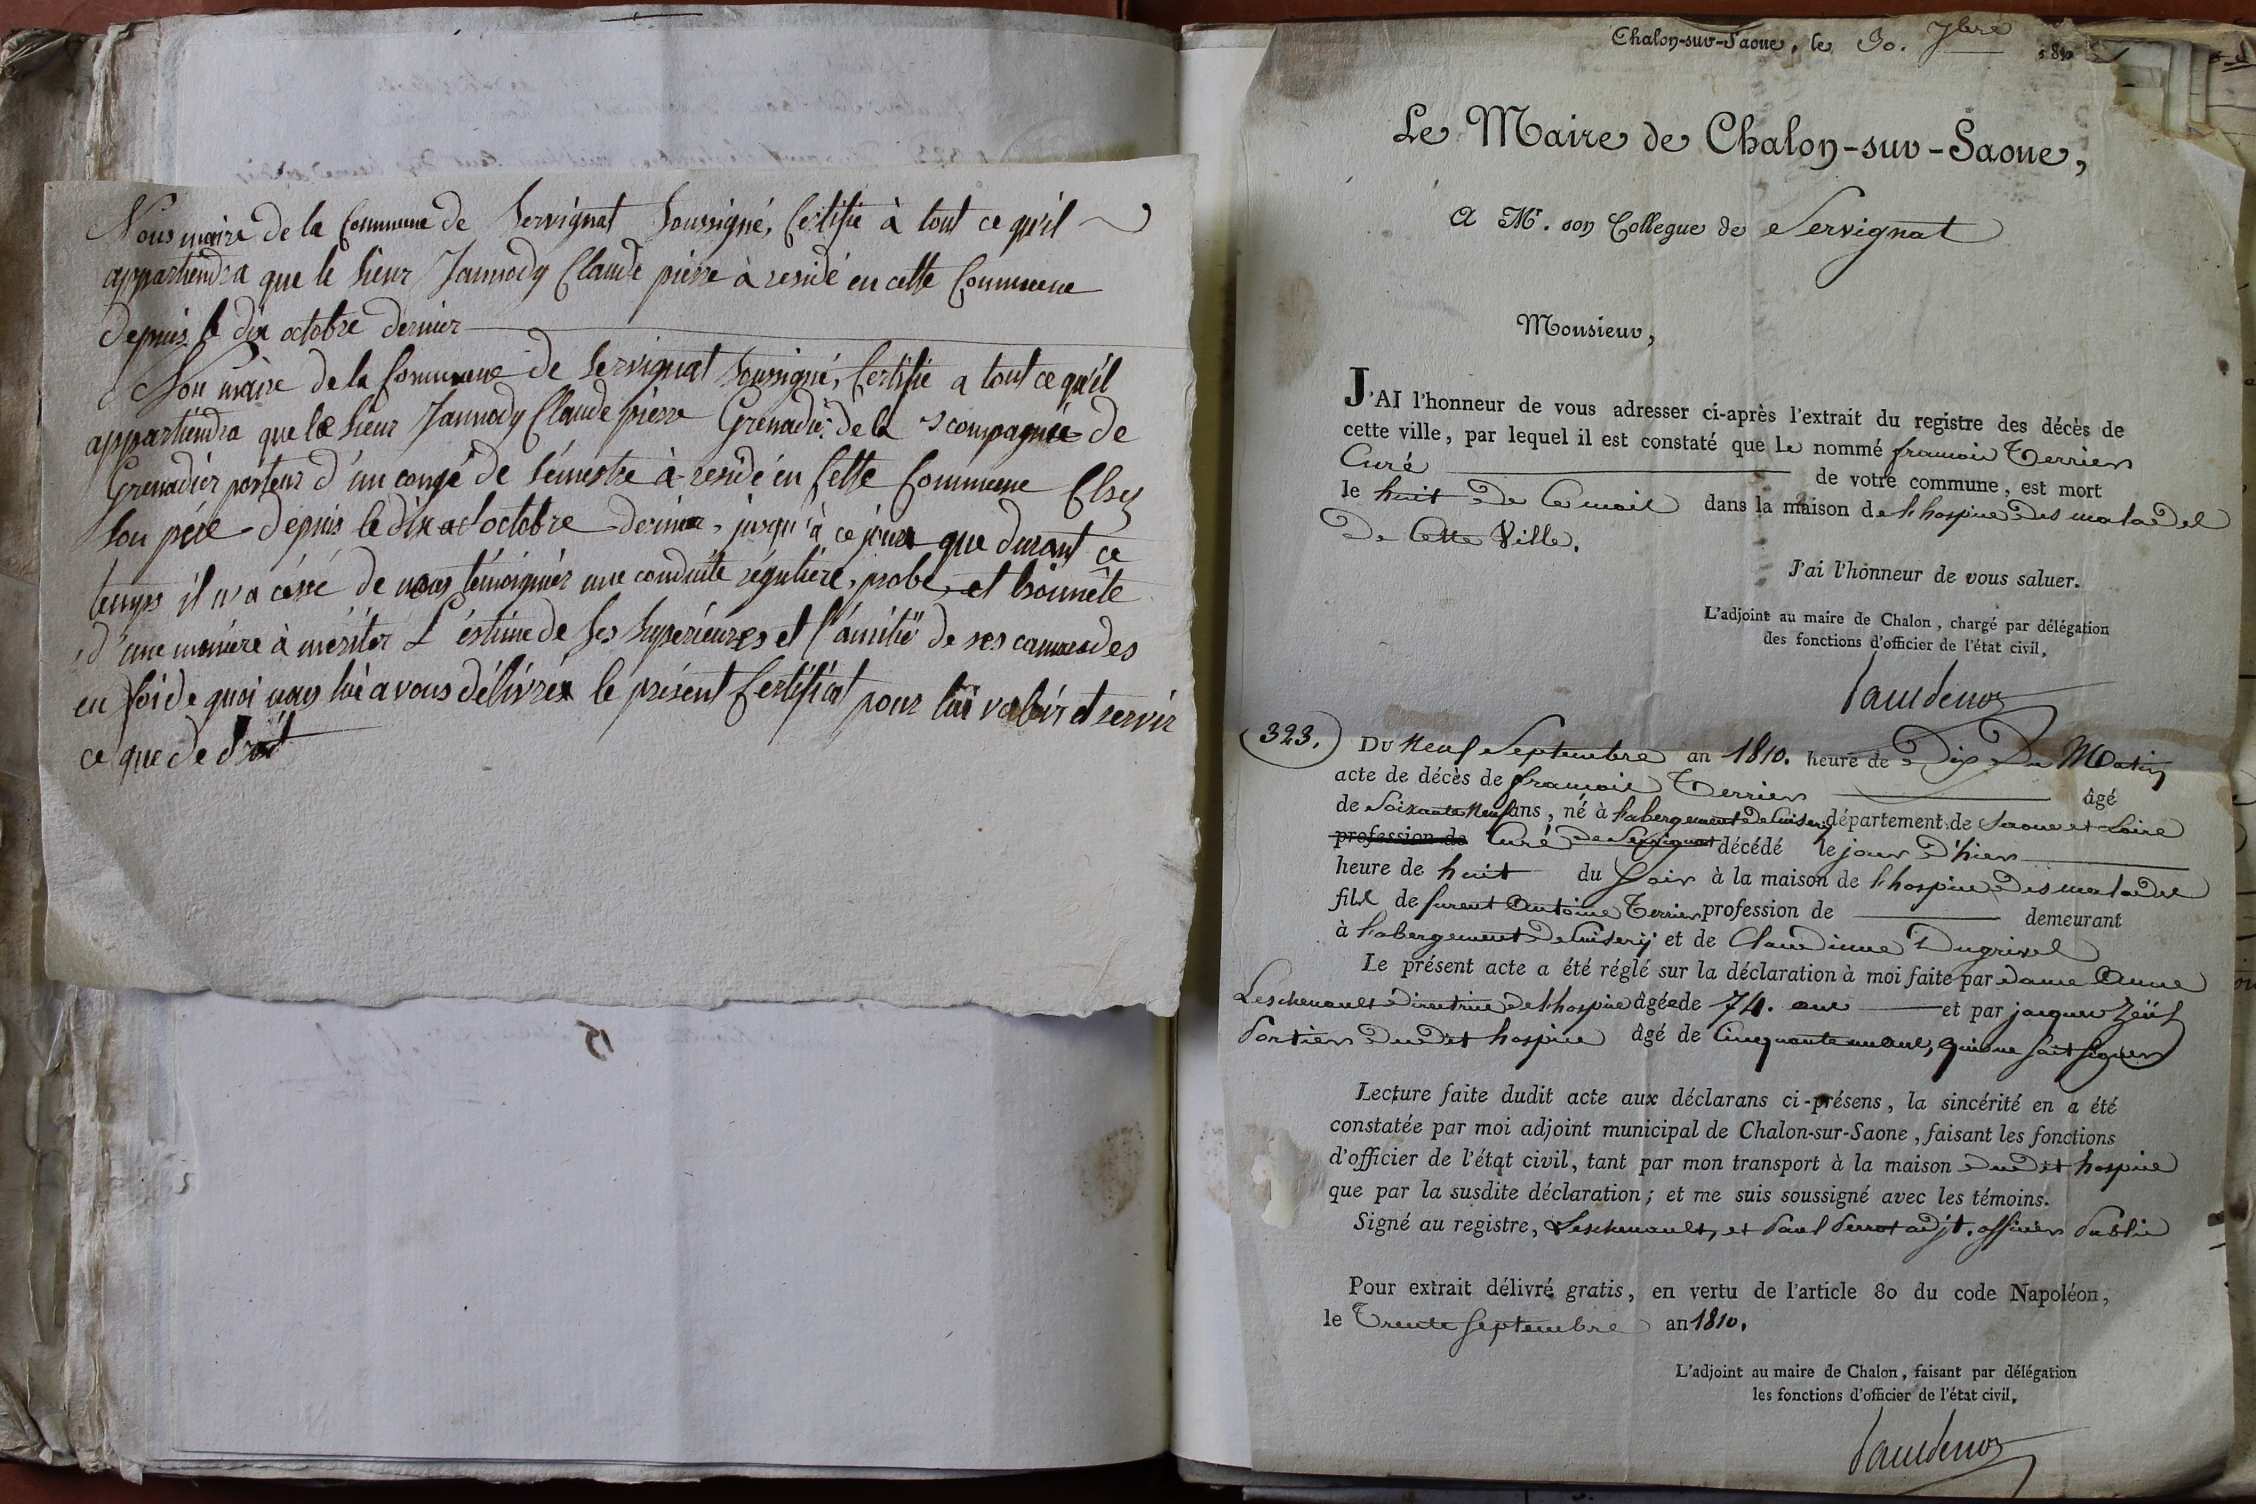 Nous maire de la Commune de Servignat Soussigné, Certifie à tout ce qu'il
appartiendra que le Sieur Jannody Claude pierre à residé en cette Commune
depuis le dix octobre dernier
Nou maire de la Commune de Servignat Soussigné, Certifie a tout ce qu'il
appartiendra que le Sieur Jannody Claude pierre Grenadier de la compagnie de
Grenadier porteur d'un congé de Sémestre à residé en Cette Commune Chez
Son pére depuis le dix octobre dernier, jusqu'à ce jour que durant ce
temps il n'a céssé de nous témoignér une conduite réguliére, probe, et honnête
d'une maniere à mériter L'éstime de Ses Supérieures et l'amitié de ses camarades
en foi de quoi nous lui avons délivré le présent Certificat pour lui valoir et servir
ce que de droit
15
Chalon-sur-Saone, le 30. 7bre 1810
Le Maire de Chalon-sur-Saone,
A Mr. son Collegue de Servignat
Monsieur,
J'AI l'honneur de vous adresser ci-après l'extrait du registre des décès de
cette ville, par lequel il est constaté que le nommé francois Terrier
Curé de votre commune, est mort
le huit de ce mois dans la maison de l'hospice des malades
de Cette Ville.
J'ai l'honneur de vous saluer.
L'adjoint au maire de Chalon, chargé par délégation
des fonctions d'officier de l'état civil,
323.
DU Neuf Septembre an 1810. heure de Dix Du Matin
acte de décès de francois Terrier âgé
de Soixante Neuf ans, né à l'abergement de Cuisery département de Saone et Loire
profession de Curé de Servignat décédé le jour d'hier
heure de huit du Soir à la maison de l'hospice des malades
fils de furent Antoine Terrier profession de demeurant
à l'abergement de Cuisery et de Claudinne Dugrivel
Le présent acte a été réglé sur la déclaration à moi faite par dame Anne
Leschenault directrice de l'hospice âgée de 74. ans et par jacques
Portier dudit hospice âgé de Cinquante un ans, qui ne sait signer
Lecture faite dudit acte aux déclarans ci-présens, la sincérité en a été
constatée par moi adjoint municipal de Chalon-sur-Saone, faisant les fonctions
d'officier de l'état civil, tant par mon transport à la maison dudit hospice
que par la susdite déclaration; et me suis soussigné avec les témoins.
Signé au registre, Leschenault, et Paul Perrot adjt. officier Public
Pour extrait délivré gratis, en vertu de l'article 80 du code Napoléon,
le Trente Septembre an 1810.
L'adjoint au maire de Chalon, faisant par délégation
les fonctions d'officier de l'état civil,